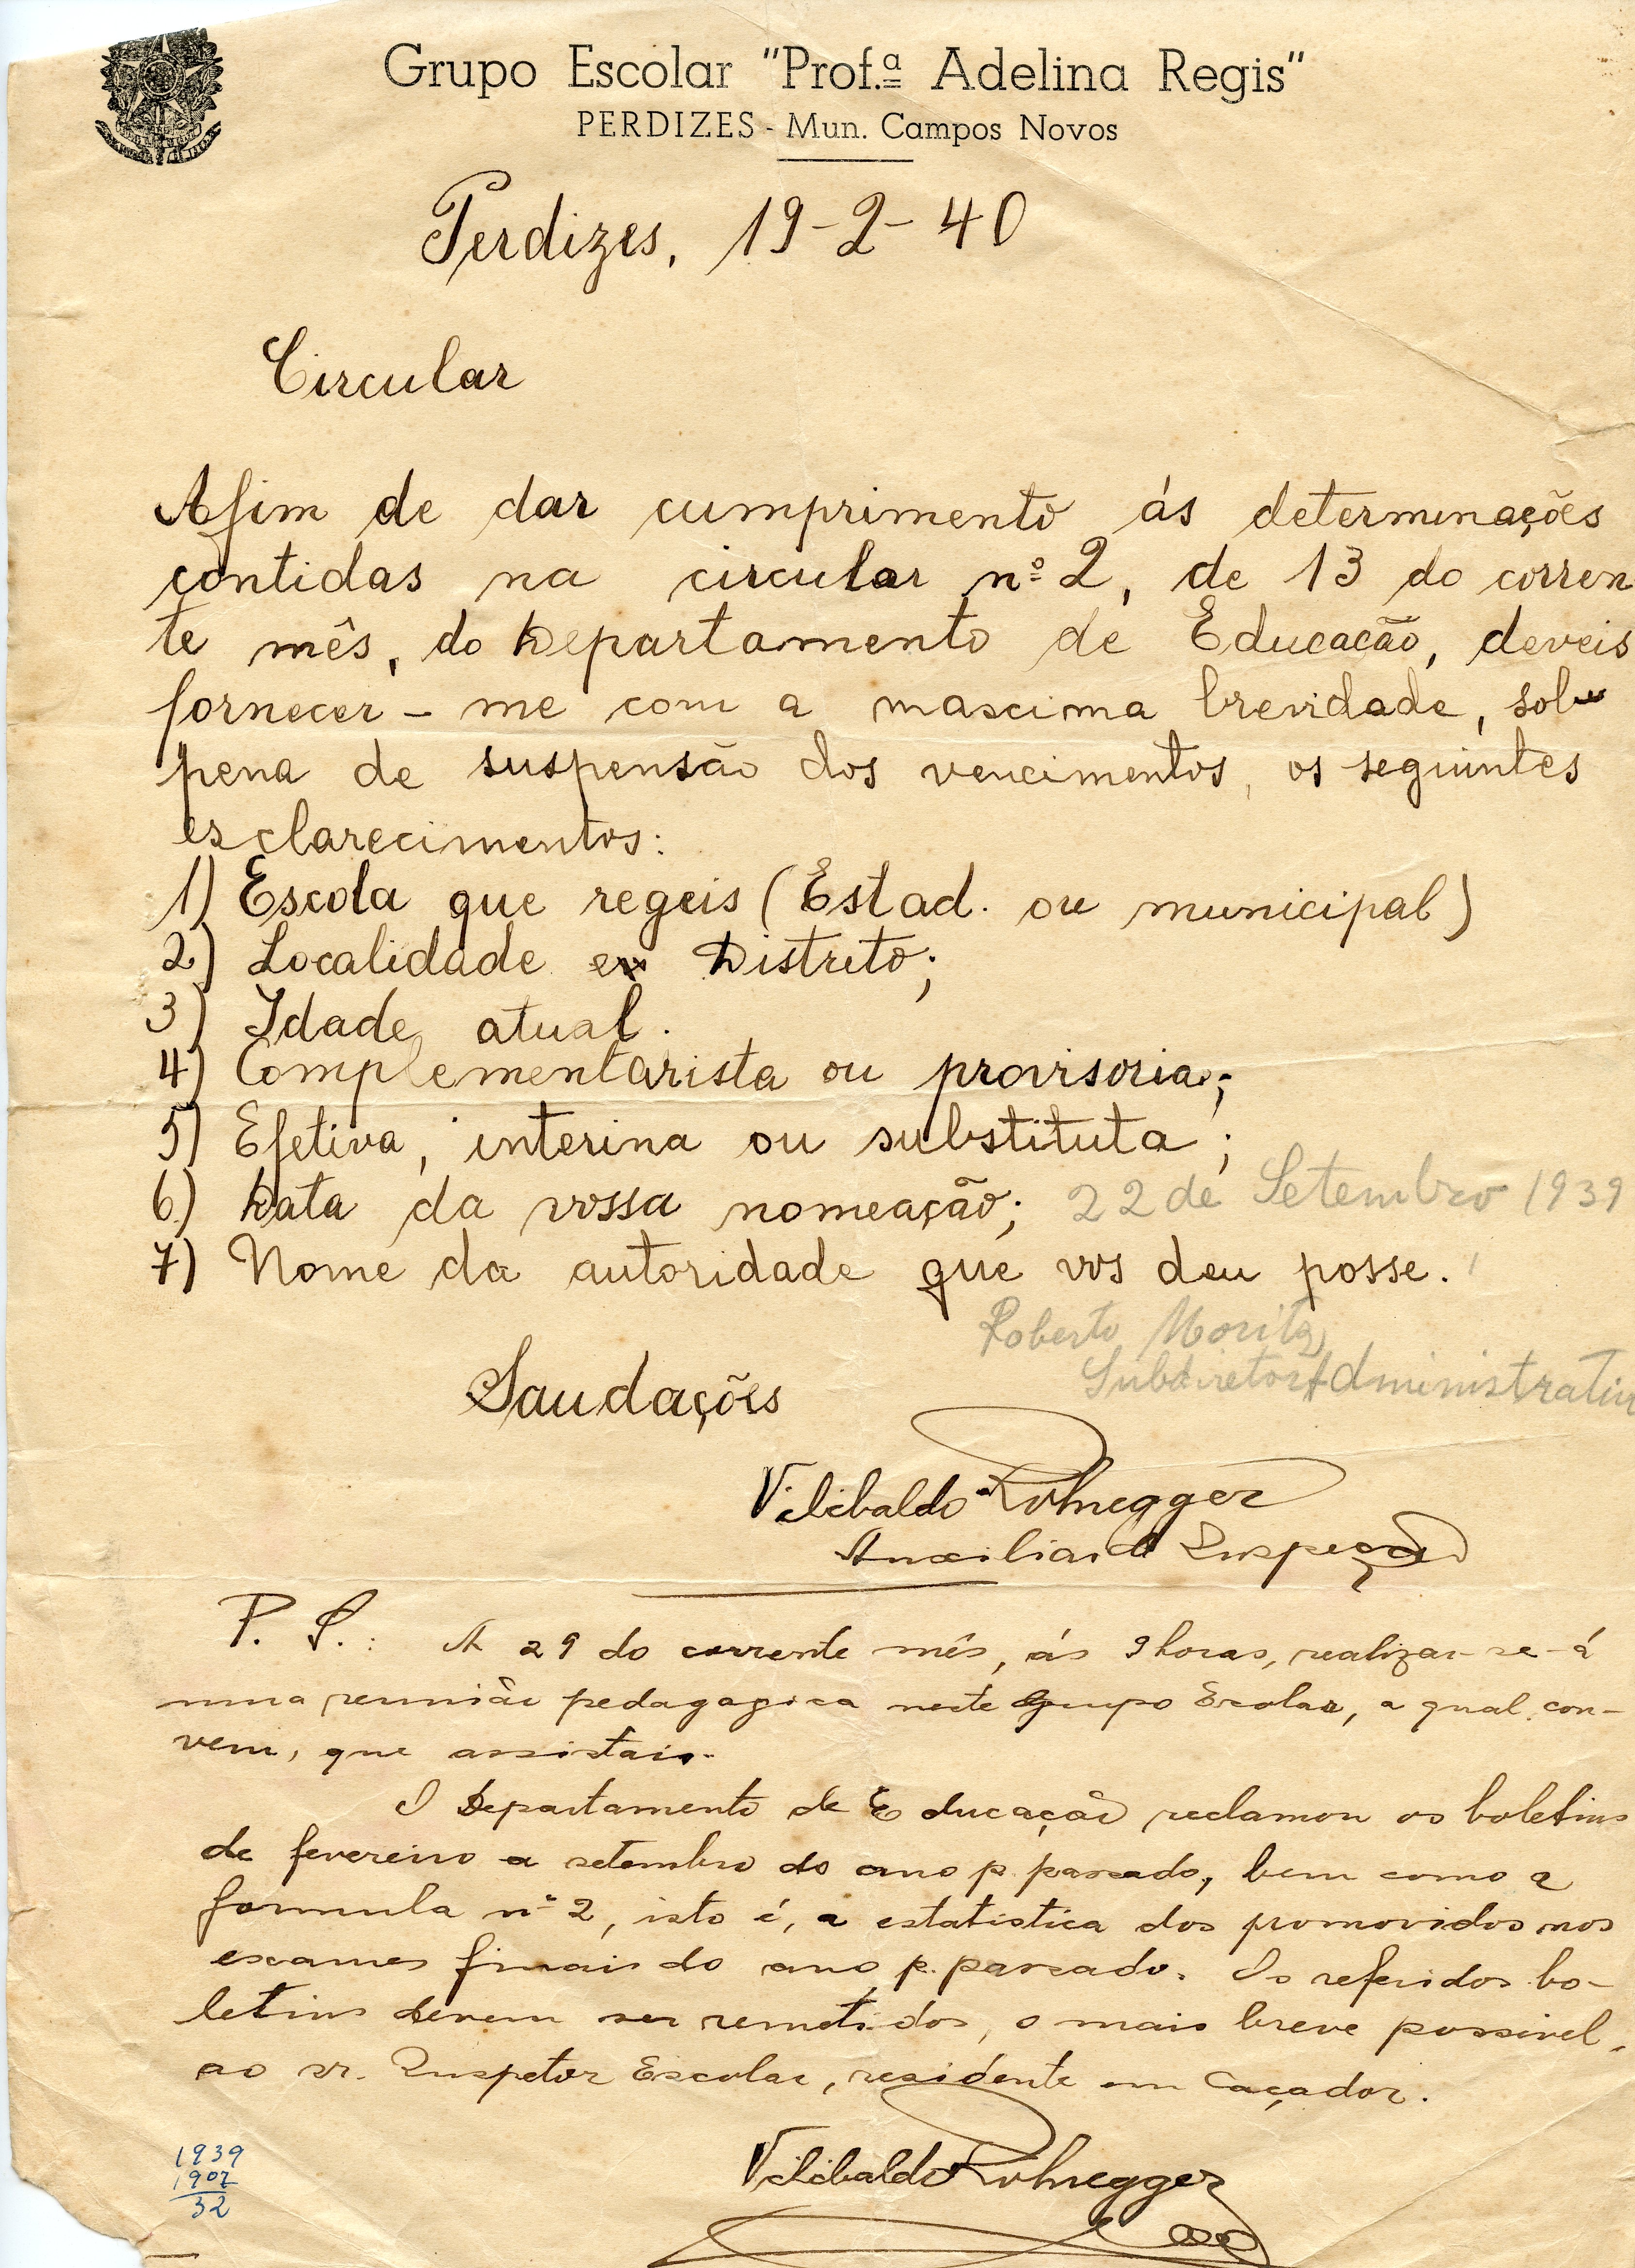 Grupo Escolar "Prof.ª Adelina Regis"
PERDIZES - Mun. Campos Novos
Perdizes, 19-2-40
Circular
Afim de dar cumprimento ás determinações
contidas na circular nº 2, de 13 do corren
te mês, do Departamento de Educação, deveis
fornecer-me com a maxima brevidade, sob
pena de suspensão dos vencimentos, os seguintes
esclarecimentos:
1) Escola que regeis (Estad. ou municipal)
2) Localidade e Distrito;
3) Idade atual.
4) Complementarista ou provisoria;
5) Efetiva, interina ou substituta;
6) Data da vossa nomeação; 22 de Setembro 1939
7) Nome da autoridade que vos deu posse.
Roberto Moritz
Subdiretor Administrativ
Saudações
Vilibaldo Rohnegger
Auxiliar de Inspeção
P. S.: A 29 do corrente mês, ás 9 horas, realizar-se-á
uma reunião pedagogica neste Grupo Escolar, a qual con-
vem, que assistais.
O Departamento de Educação reclamou os boletins
de fevereiro a setembro do ano p. passado, bem como a
formula nº 2, isto é, a estatistica dos promovidos nos
exames finais do ano p. passado. Os referidos bo-
letins devem ser remetidos, o mais breve possivel,
ao sr. Inspetor Escolar, residente em Caçador.
Vilibaldo Rohnegger
1939
1907
32